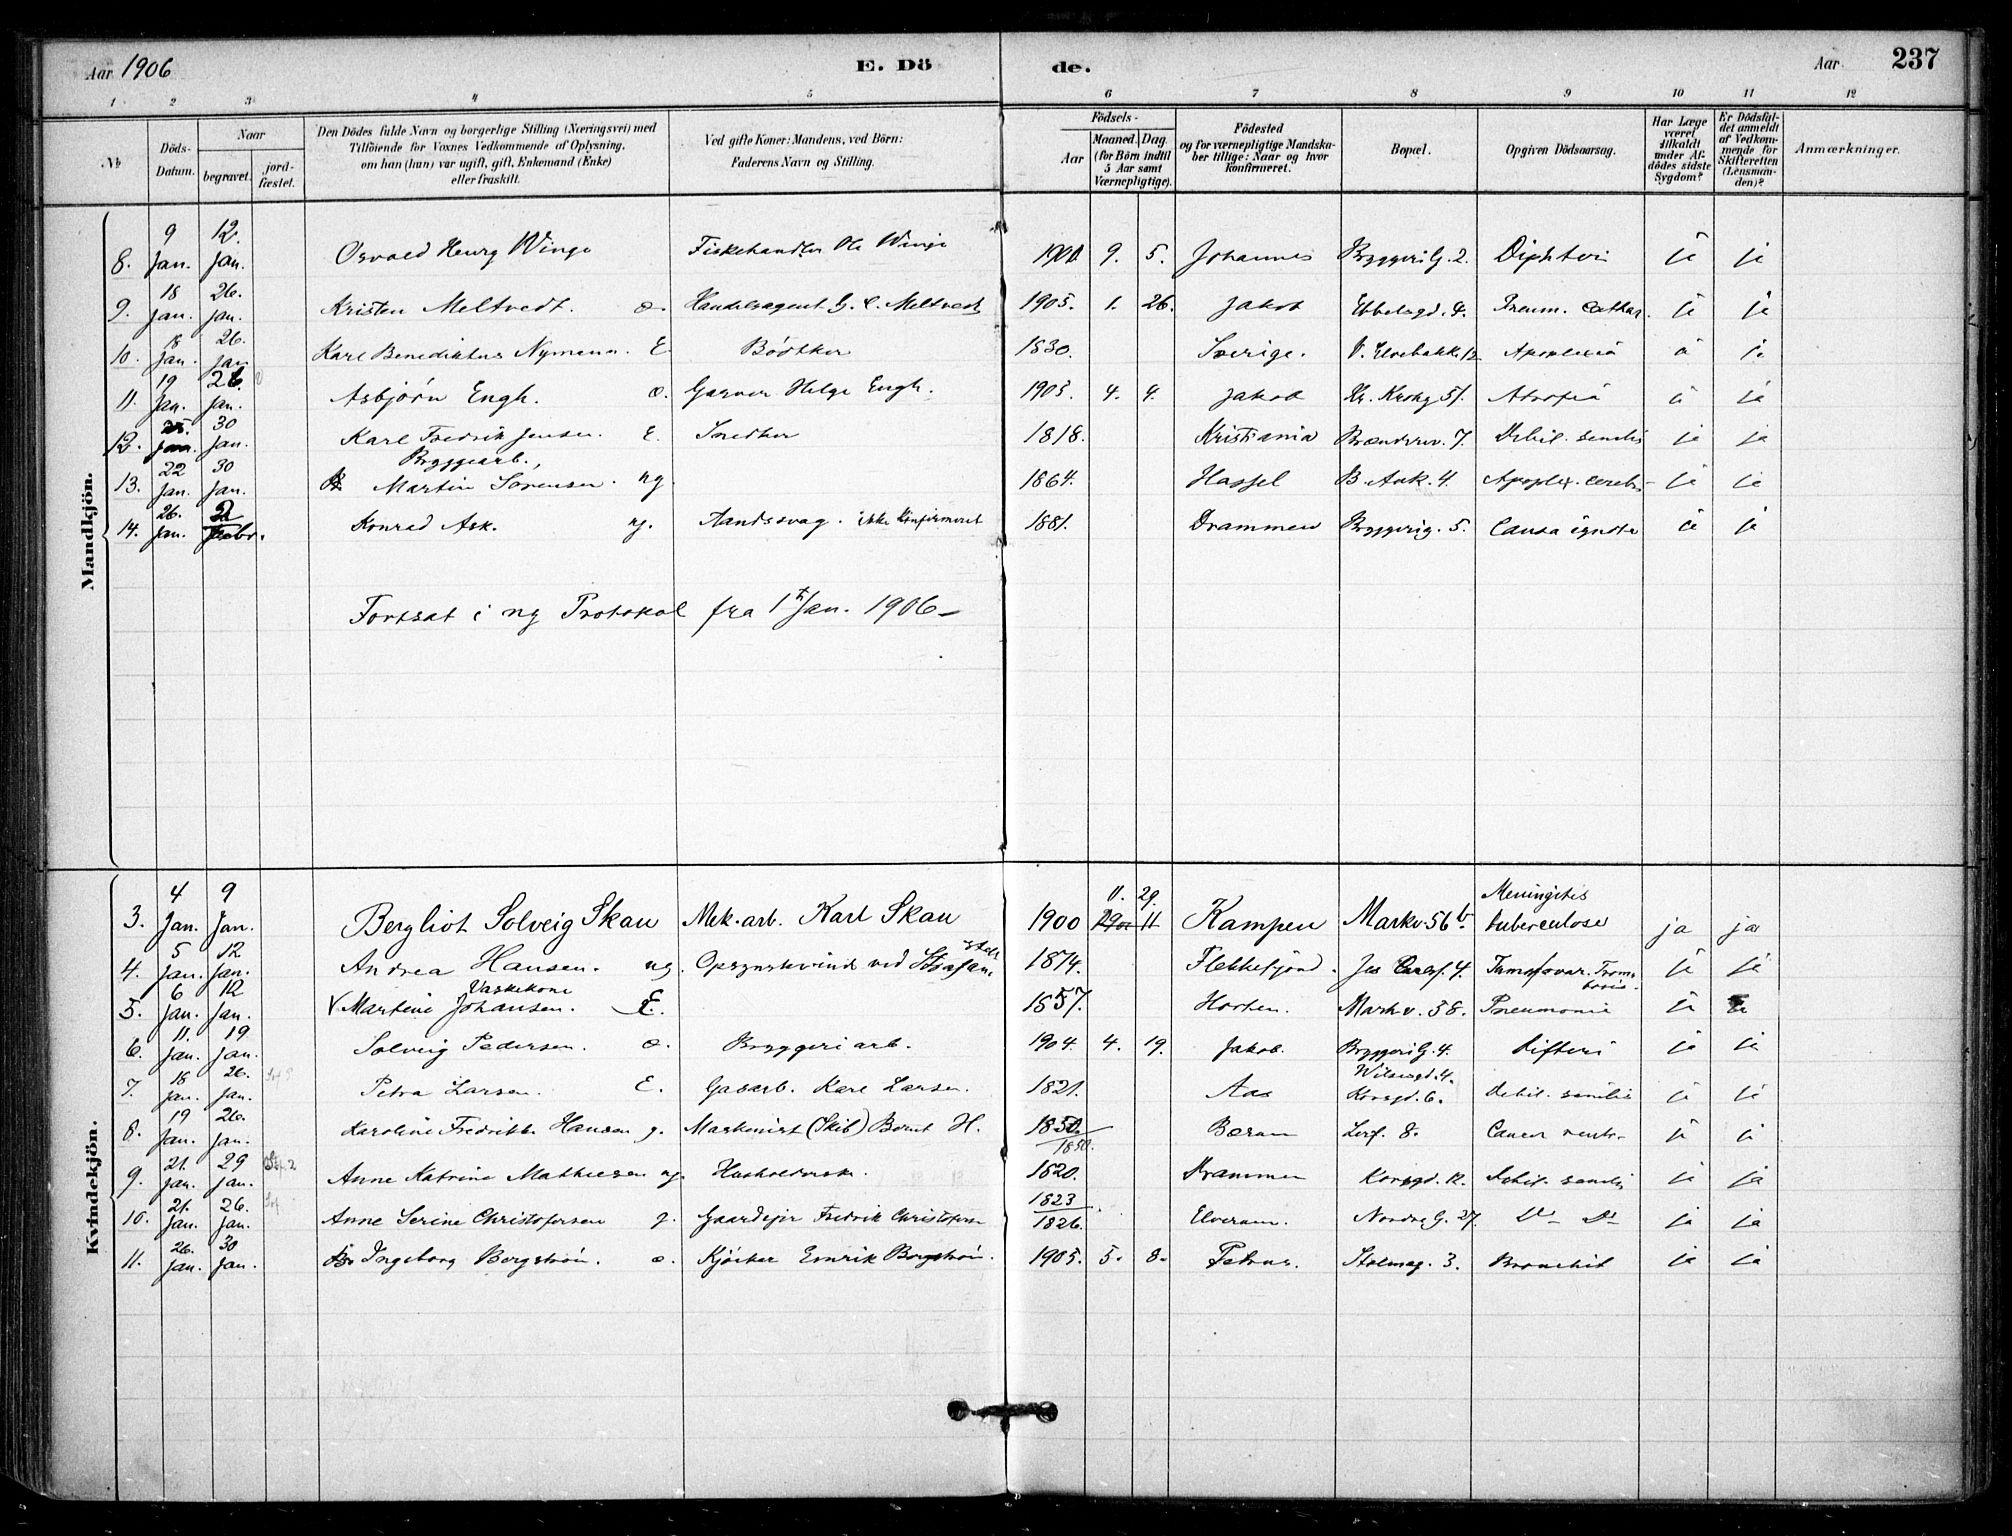 Aar 1906 E. Dö de. Aar 237
1 2 3 4 5 6 7 8 9 10 11 12
№ Döds-Datum. Naar begravet. jord-fæstet. Den Dödes fulde Navn og borgerlige Stilling (Næringsvei) med Tilföiende for Voxnes Vedkommende af Oplysning, om han (hun) var ugift, gift, Enkemand (Enke) eller fraskilt. Ved gifte Koner: Mandens, ved Börn: Faderens Navn og Stilling. Födsels- Aar Maaned. Dag. (for Börn indtil 5 Aar samt Værnepligtige). Födested og for værnepligtige Mandskaber tillige: Naar og hvor konfirmeret. Bopæl. Opgiven Dödsaarsag. Har Læge været tilkaldt under Afdödes sidste Sygdom? Er Dödsfaldet anmeldt af Vedkommende for Skifteretten (Lensmanden)? Anmærkninger.
Mandkjön.
8. 9 Jan. 12. Jan. Osvald Henry Winge Fiskehandler Ole Winge 9. 5. Johannes Bryggerig. 2. Diphteri ja ja
9. 18 Jan. 26. Jan. Kristen Meltvedt. Handelsagent G. C. Meltvedt 1905. 1. 26. Jakob Ebbelsgd. 4. Pneum. Cathar. ja ja
10. 18 Jan. 26. Jan Karl Benediktus Nymann. E. Bödtker 1830. Sverige. V. Elvebakk. 12 Apoplexia ja ja
11. 19 Jan. 26. Jan. Asbjörn Engh. Garver Helge Engh. 1905. 4. 4. Jakob Kr. Krohg 51. Atrofia ja ja
12. 25. Jan. 30 Jan. Karl Fredrik Jensen. E. Snedker 1818. Kristiania 7. Debil. senilis ja ja
13. 22 Jan. 30 Jan. Bryggearb., Martin Sörensen. ug 1864. Hassel B. Ank. 4. Apoplex. cerebri ja ja
14. 26. Jan. 2 Febr. Konrad Ask. ug. Aandssvag. ikke konfirmeret 1881. Drammen Bryggerig. 5. Causa ignota ja ja
Fortsat i ny Protokol fra 1ste Jan. 1906
Kvindekjön.
3. 4 Jan. 9 Jan. Bergliot Solveig Skau Mek. arb. Karl Skau 1900 11. 29. Kampen Markv. 56 b. Meningitis tuberculose ja ja
4. 5 Jan. 12 Jan. Andrea Hansen. ug. Opsynskvinde ved 1874. Flekkefjord. 4. ja ja
5. 6 Jan. 12 Jan. Martine Johansen. Vaskekone E. 1857. Horten. Markv. 58. Pneumonie ja ja
6. 11. Jan. 19 Jan. Solveig Pedersen. Bryggeriarb. 1904. 4. 19. Jakob. Bryggerig. 4. Difteri ja ja
7. 18 Jan. 26. Jan. Petra Larsen. E. Gasarb. Karl Larsen. 1821. Aas Wilsesgd. 4. Korsgd. 6. Debil. senilis ja ja
8. 19 Jan. 26. Jan. Karoline Fredrikke Hansen g. Maskinist (Skib) Bernt H. 1850. 1850. Bærum 8. Cancer ventr. ja ja
9. 21. Jan. 29 Jan. Anne Katrine Mathiesen ug. Husholderske. 1820. Drammen Korsgd. 12. Debil. senilis ja ja
10. 21. Jan. 26. Jan. Anne Serine Christofersen g. Gaardejer Fredrik Christofersen 1823 1826. Elverum. Nordreg. 27. Do Do ja ja
11. 26. Jan. 30 Jan. Ingeborg Bergström. Kjörker Emrik Bergström. 1905. 5. 8. Petrus. Stolmag. 3. Bronchit ja ja